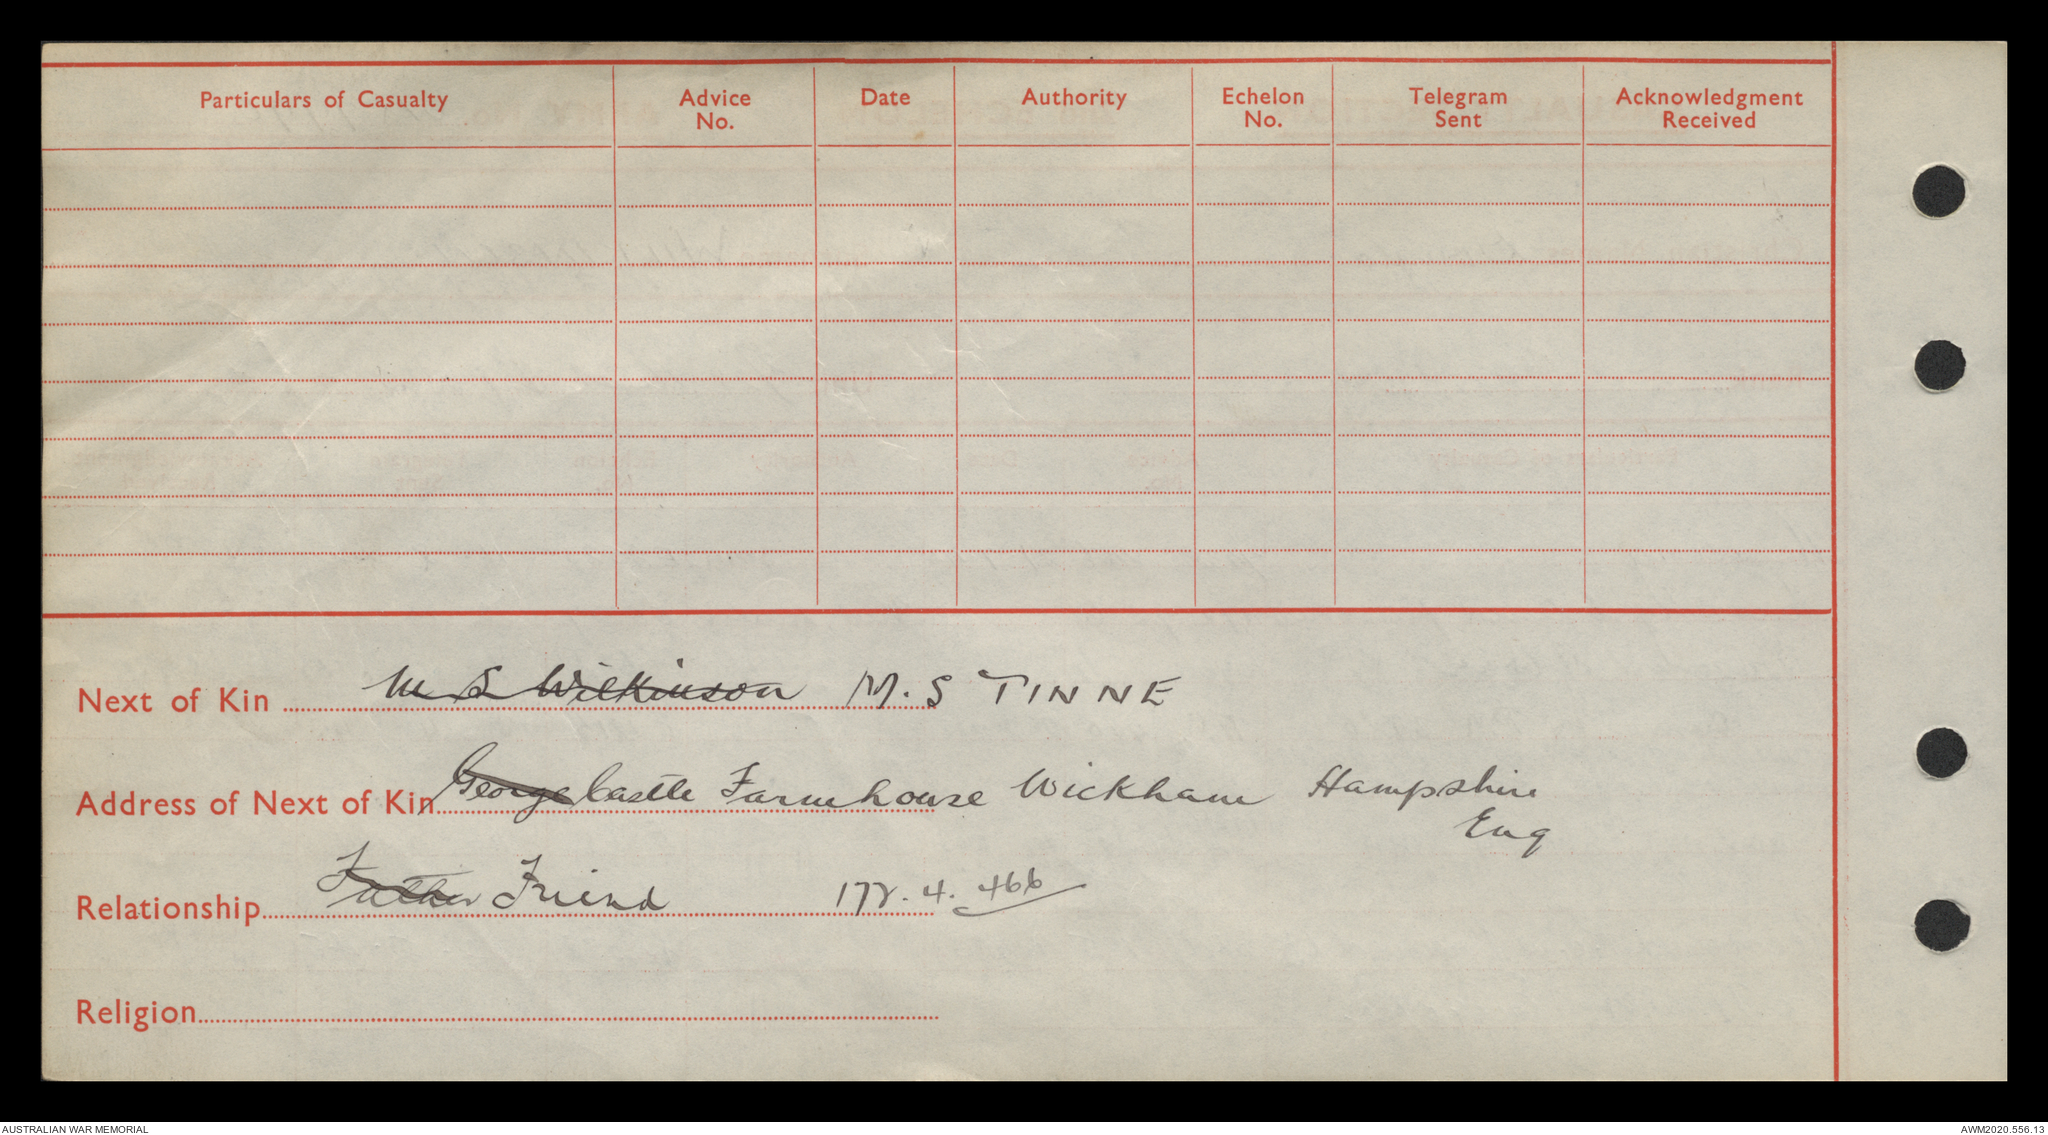 Particulars of Casualty Advice No. Date Authority Echelon No. Telegram Sent Acknowledgment Received
Next of Kin M S Wilkinson M. S TINNE
Address of Next of Kin George Castle Farmhouse Wickham Hampshire
Eng
Relationship Father Friend 172. 4. 466
Religion
AUSTRALIAN WAR MEMORIAL AWM2020.556.13